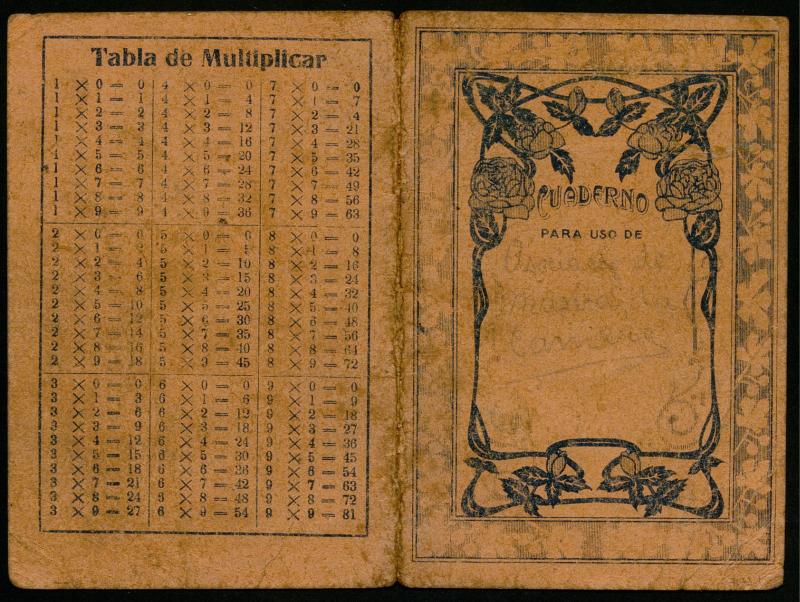 Tabla de Multiplicar
1 × 0 = 0 4 × 0 = 0 7 × 0 = 0
1 × 1 = 1 4 × 1 = 4 7 × 1 = 7
1 × 2 = 2 4 × 2 = 8 7 × 2 = 4
1 × 3 = 3 4 × 3 = 12 7 × 3 = 21
1 × 4 = 4 4 × 4 = 16 7 × 4 = 28
1 × 5 = 5 4 × 5 = 20 7 × 5 = 35
1 × 6 = 6 4 × 6 = 24 7 × 6 = 42
1 × 7 = 7 4 × 7 = 28 7 × 7 = 49
1 × 8 = 8 4 × 8 = 32 7 × 8 = 56
1 × 9 = 9 4 × 9 = 36 7 × 9 = 63
2 × 0 = 0 5 × 0 = 0 8 × 0 = 0
2 × 1 = 2 5 × 1 = 5 8 × 1 = 8
2 × 2 = 4 5 × 2 = 10 8 × 2 = 16
2 × 3 = 6 5 × 3 = 15 8 × 3 = 24
2 × 4 = 8 5 × 4 = 20 8 × 4 = 32
2 × 5 = 10 5 × 5 = 25 8 × 5 = 40
2 × 6 = 12 5 × 6 = 30 8 × 6 = 48
2 × 7 = 14 5 × 7 = 35 8 × 7 = 56
2 × 8 = 16 5 × 8 = 40 8 × 8 = 64
2 × 9 = 18 5 × 9 = 45 8 × 9 = 72
3 × 0 = 0 6 × 0 = 0 9 × 0 = 0
3 × 1 = 3 6 × 1 = 6 9 × 1 = 9
3 × 2 = 6 6 × 2 = 12 9 × 2 = 18
3 × 3 = 9 6 × 3 = 18 9 × 3 = 27
3 × 4 = 12 6 × 4 = 24 9 × 4 = 36
3 × 5 = 15 6 × 5 = 30 9 × 5 = 45
3 × 6 = 18 6 × 6 = 36 9 × 6 = 54
3 × 7 = 21 6 × 7 = 42 9 × 7 = 63
3 × 8 = 24 6 × 8 = 48 9 × 8 = 72
3 × 9 = 27 6 × 9 = 54 9 × 9 = 81
CUADERNO
PARA USO DE
de